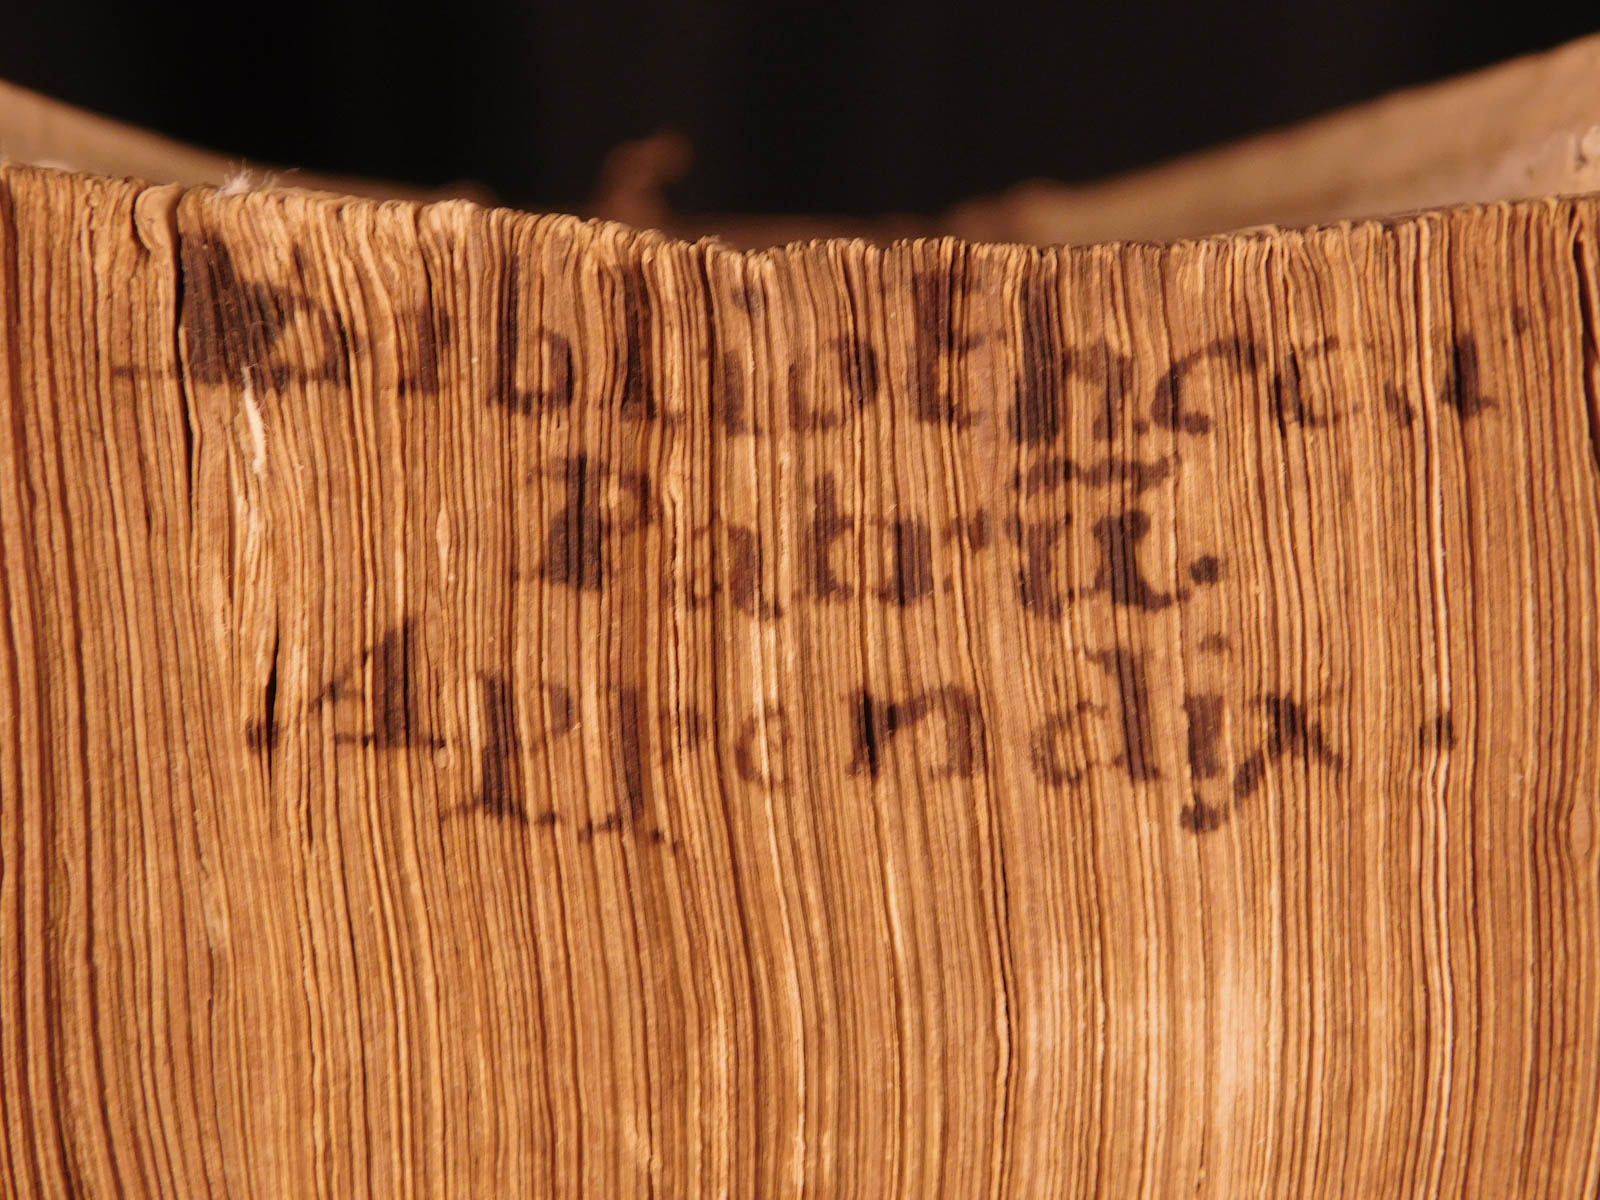 Bibliothecæ
Patrũ.
Appendix.